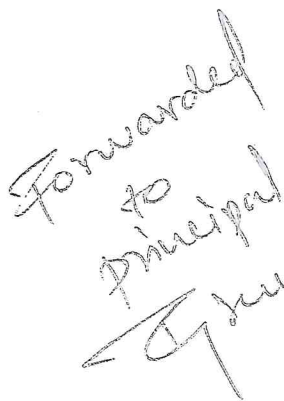 Forwarded
to
principal